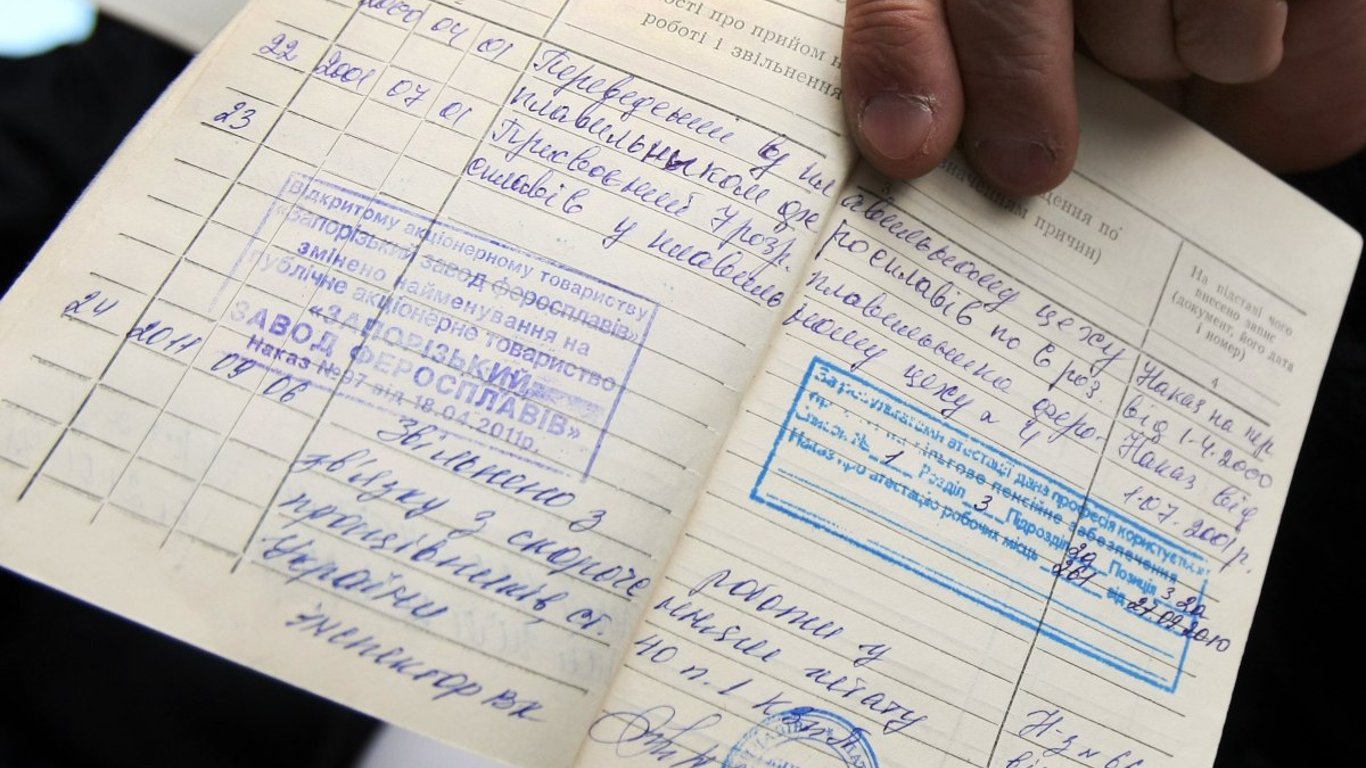 ості про прийом н
роботі і звільнення
значенням причин)
На підставі чого
внесено запис
(документ, його дата
і номер)
4
22 2000 04 01 Переведений в плавильному цеху
плавильныком феросплавів по 6 роз.
Наказ на пер.
від 1.4.2000
23 2001 07 01 Присвоєний 7 розр. плавильника феро-
сплавів у плавильному цеху № 4
Наказ від
1.07.2001р.
Відкритому акціонерному товариству
«Запорізький завод феросплавів»
змінено найменування на
публічне акціонерне товариство
«ЗАПОРІЗЬКИЙ
ЗАВОД ФЕРОСПЛАВІВ»
Наказ №97 від 18.04.2011р.
За результатами атестації дана професія користується
пільгове пенсійне забезпечення
Список № 1 Розділ 3 Підрозділ 2а Позиція 3.2а
Наказ про атестацію робочих місць 261 від 27.09.2010
24 2011 09 06 Звільнено з роботи у
звязку з скороче
працівників, ст. 40 п. 1 КЗпП
України
інспектор ВК